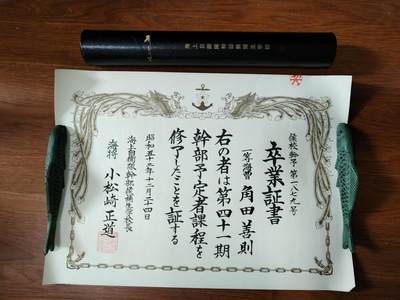 海上自衛隊幹部候補生学校
卒業証書
一等海曹 角田善則
右の者は第四十一期
幹部予定者課程を
修了したことを証する
昭和五十三年十二月二十四日
海上自衛隊幹部候補生学校長
海将 小松崎正道